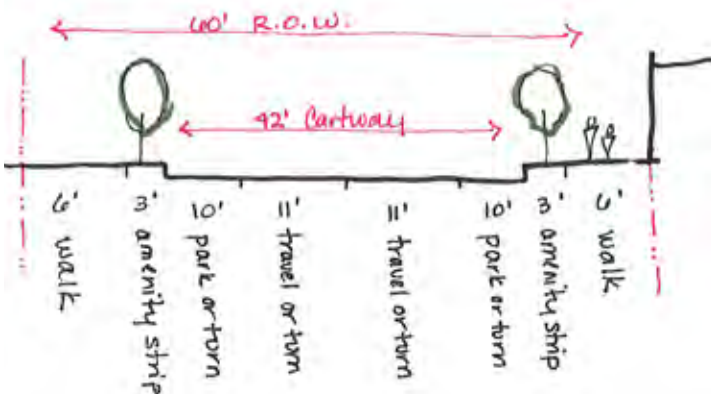 60' R.O.W.
42' Cartway
6' walk
3' amenity strip
10' park or turn
11' travel or turn
11' travel or turn
10' park or turn
3' amenity strip
6' walk